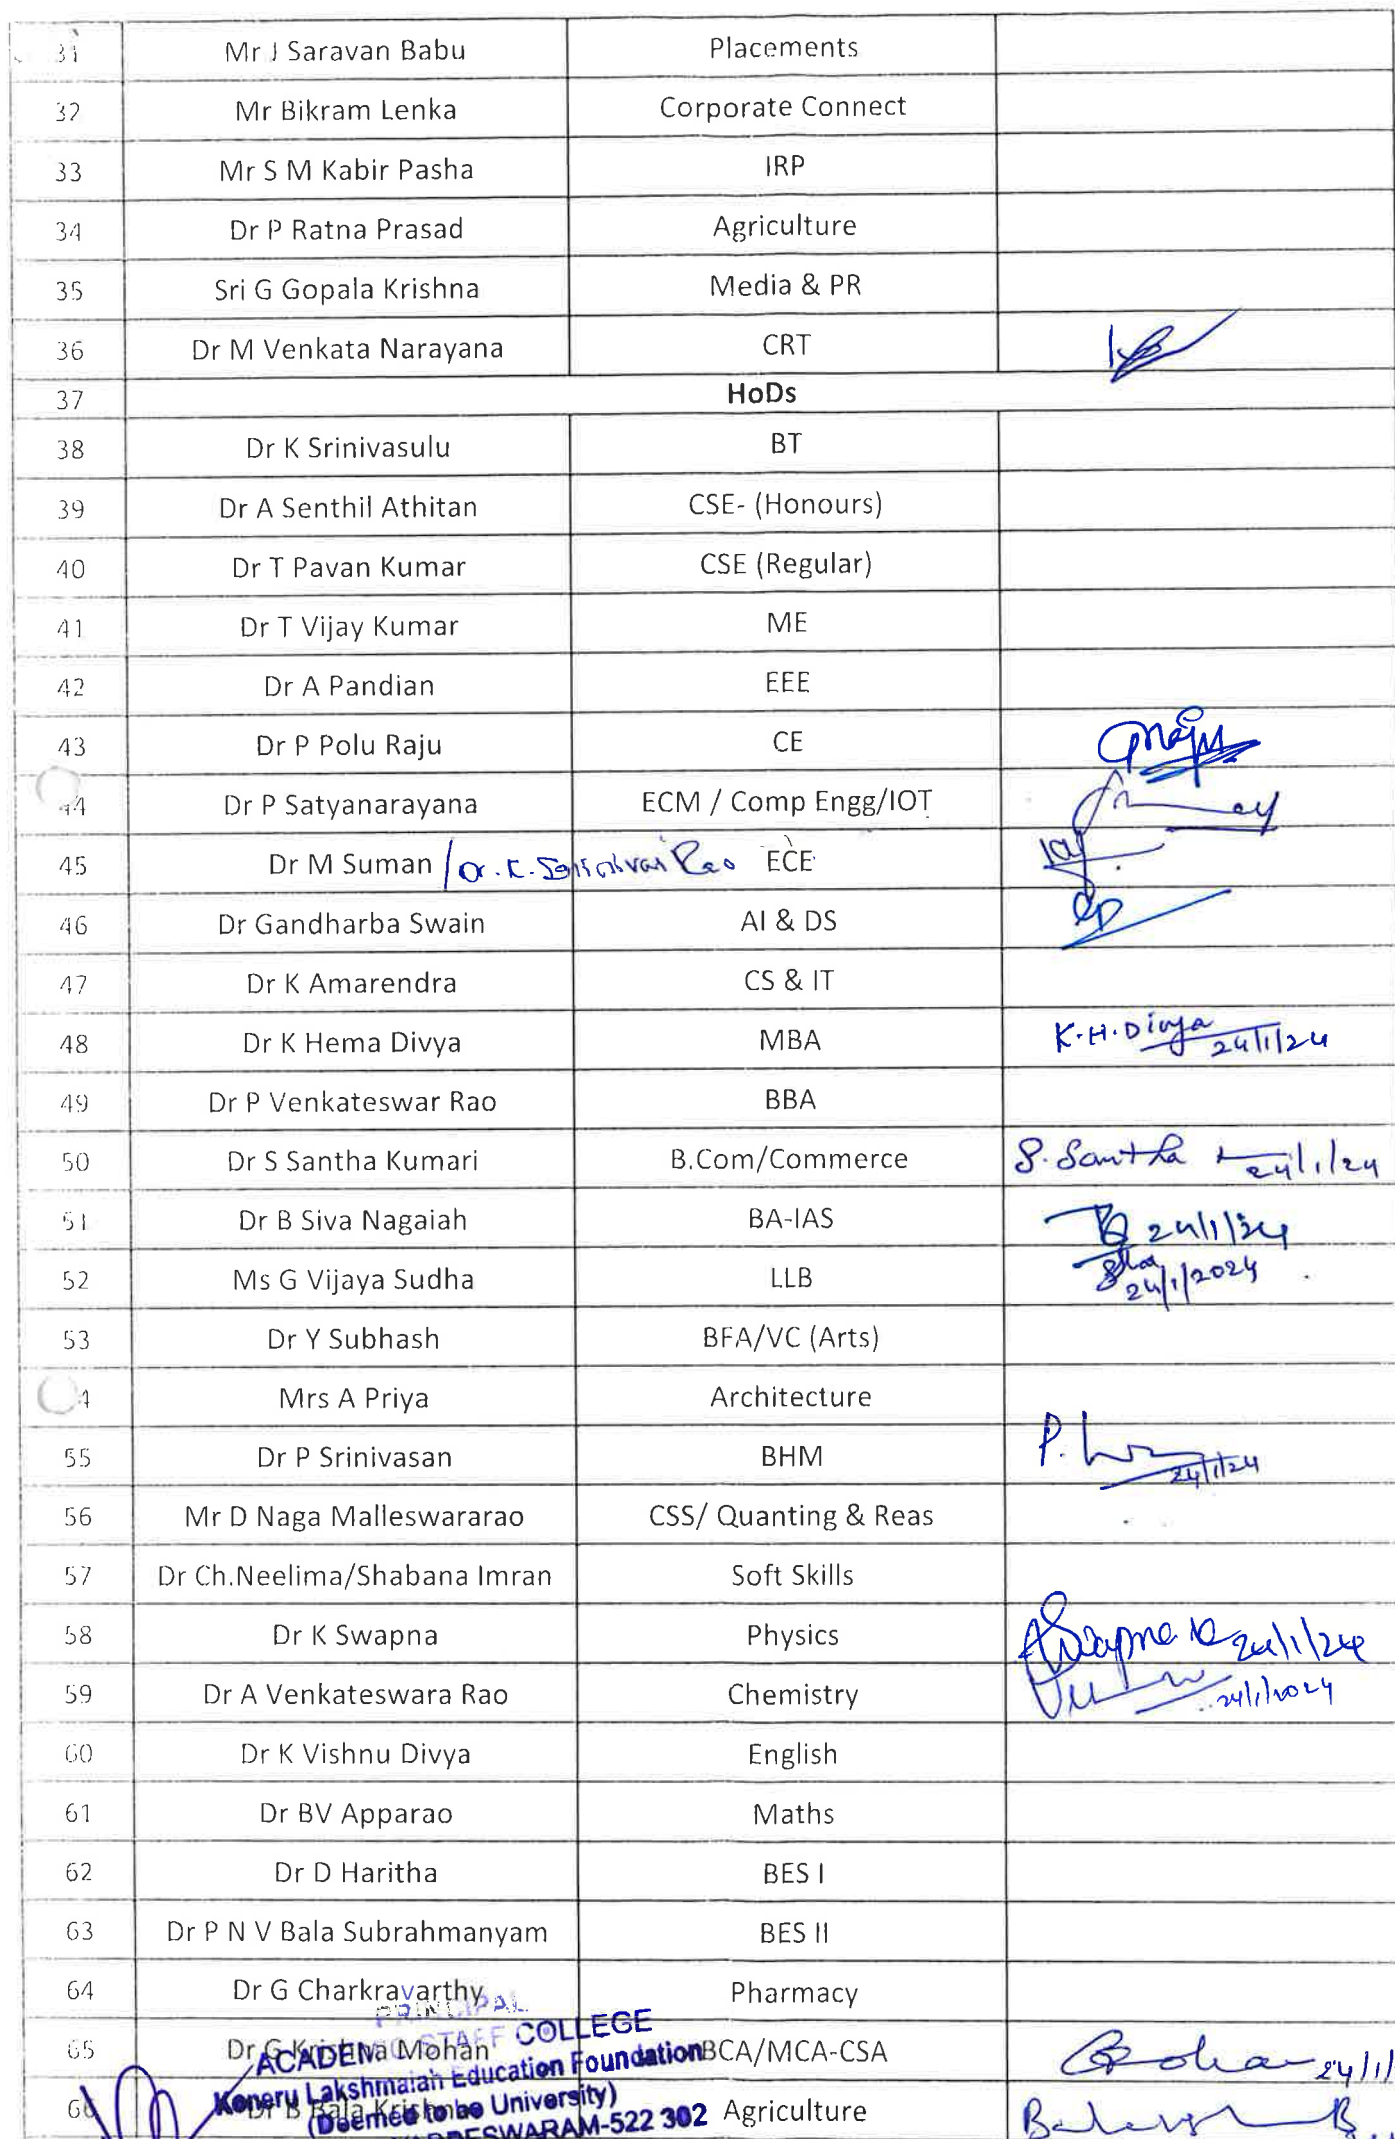 31 Mr J Saravan Babu Placements
32 Mr Bikram Lenka Corporate Connect
33 Mr S M Kabir Pasha IRP
34 Dr P Ratna Prasad Agriculture
35 Sri G Gopala Krishna Media & PR
36 Dr M Venkata Narayana CRT
37 HoDs
38 Dr K Srinivasulu BT
39 Dr A Senthil Athitan CSE- (Honours)
40 Dr T Pavan Kumar CSE (Regular)
41 Dr T Vijay Kumar ME
42 Dr A Pandian EEE
43 Dr P Polu Raju CE
44 Dr P Satyanarayana ECM / Comp Engg/IOT
45 Dr M Suman / Dr. K. Rao ECE
46 Dr Gandharba Swain AI & DS
47 Dr K Amarendra CS & IT
48 Dr K Hema Divya MBA K.H.Divya 24/1/24
49 Dr P Venkateswar Rao BBA
50 Dr S Santha Kumari B.Com/Commerce S. Santha 24/1/24
51 Dr B Siva Nagaiah BA-IAS 24/1/24
52 Ms G Vijaya Sudha LLB 24/1/2024
53 Dr Y Subhash BFA/VC (Arts)
4 Mrs A Priya Architecture
55 Dr P Srinivasan BHM P. 24/1/24
56 Mr D Naga Malleswararao CSS/ Quanting & Reas
57 Dr Ch.Neelima/Shabana Imran Soft Skills
58 Dr K Swapna Physics Swapna K 24/1/24
59 Dr A Venkateswara Rao Chemistry 24/1/2024
60 Dr K Vishnu Divya English
61 Dr BV Apparao Maths
62 Dr D Haritha BES I
63 Dr P N V Bala Subrahmanyam BES II
64 Dr G Charkravarthy Pharmacy
PRINCIPAL
65 Dr G Krishna Mohan BCA/MCA-CSA 24/1/
ACADEMIC STAFF COLLEGE
Koneru Lakshmaiah Education Foundation
66 Dr B Bala Krishna Agriculture
(Deemed to be University)
522 302